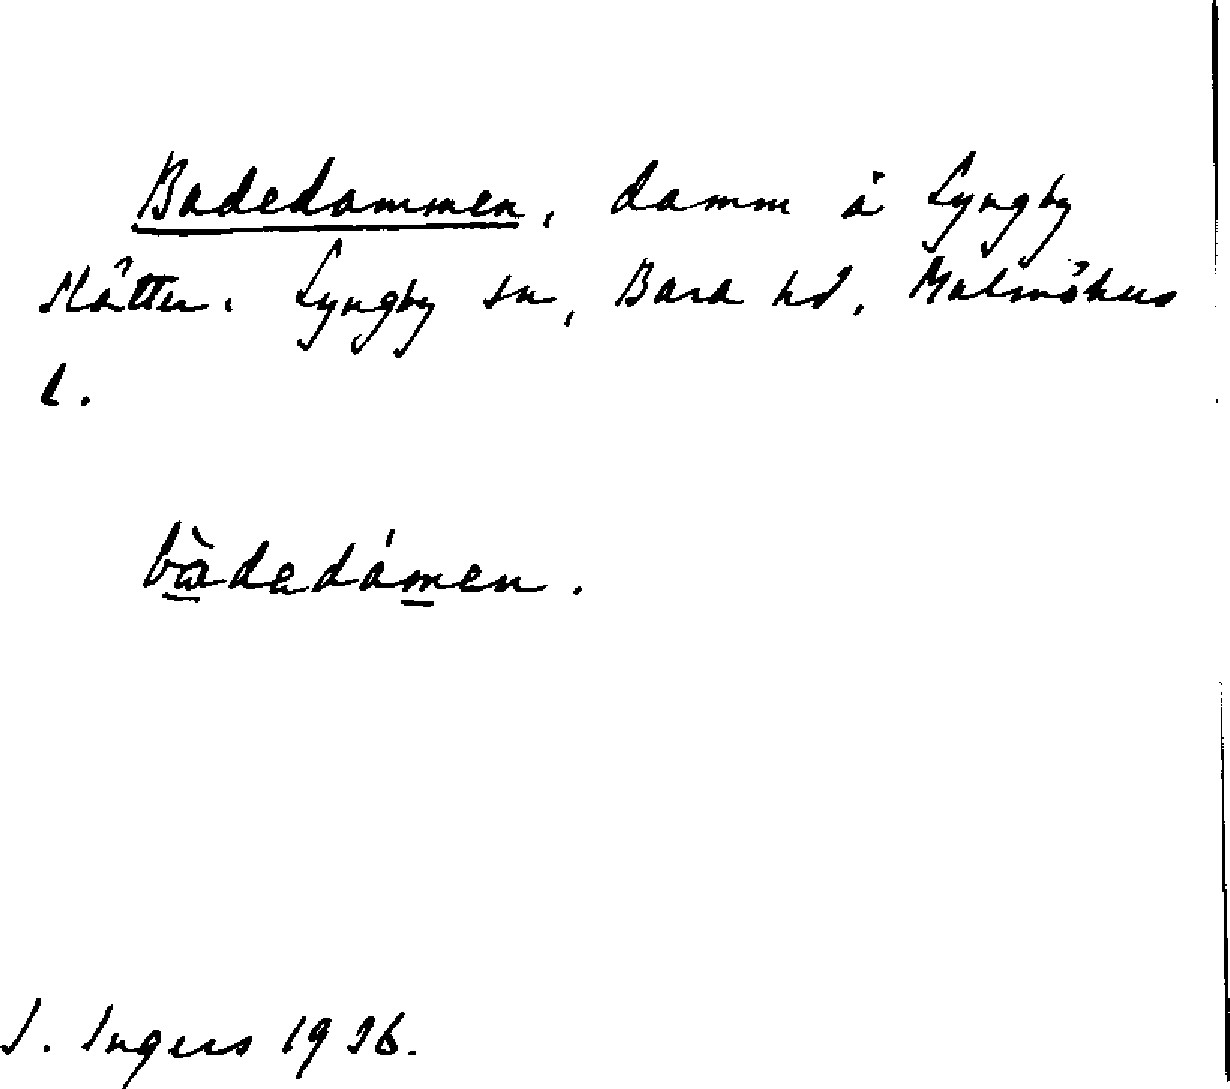 Badedammen, damm å Lyngby
slätter. Lyngby sn, Bara hd, Malmöhus
l.
bàdedámen.
I. Ingers 1936.